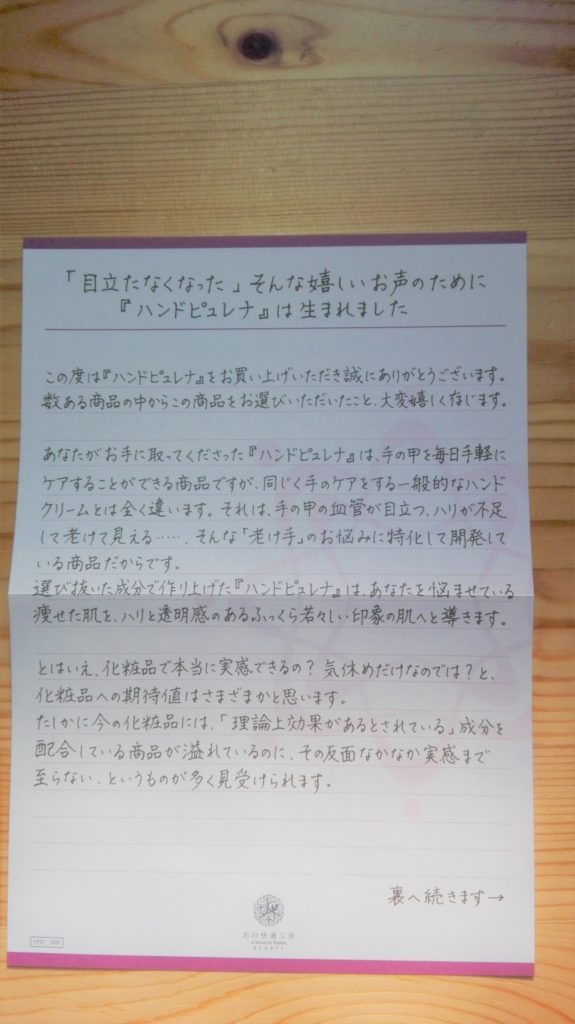 「目立たなくなった」そんな嬉しいお声のために
『ハンドピュレナ』は生まれました
この度は『ハンドピュレナ』をお買い上げいただき誠にありがとうございます。
数ある商品の中からこの商品をお選びいただいたこと、大変嬉しく存じます。
あなたがお手に取ってくださった『ハンドピュレナ』は、手の甲を毎日手軽に
ケアすることができる商品ですが、同じく手のケアをする一般的なハンド
クリームとは全く違います。それは、手の甲の血管が目立つ、ハリが不足
して老けて見える……、そんな「老け手」のお悩みに特化して開発して
いる商品だからです。
選び抜いた成分で作り上げた『ハンドピュレナ』は、あなたを悩ませている
痩せた肌を、ハリと透明感のあるふっくら若々しい印象の肌へと導きます。
とはいえ、化粧品で本当に実感できるの？気休めだけなのでは？と、
化粧品への期待値はさまざまかと思います。
たしかに今の化粧品には、「理論上効果があるとされている」成分を
配合している商品が溢れているのに、その反面なかなか実感まで
至らない、というものが多く見受けられます。
裏へ続きます→
北の快適工房
J NORTH FARM
BEAUTY